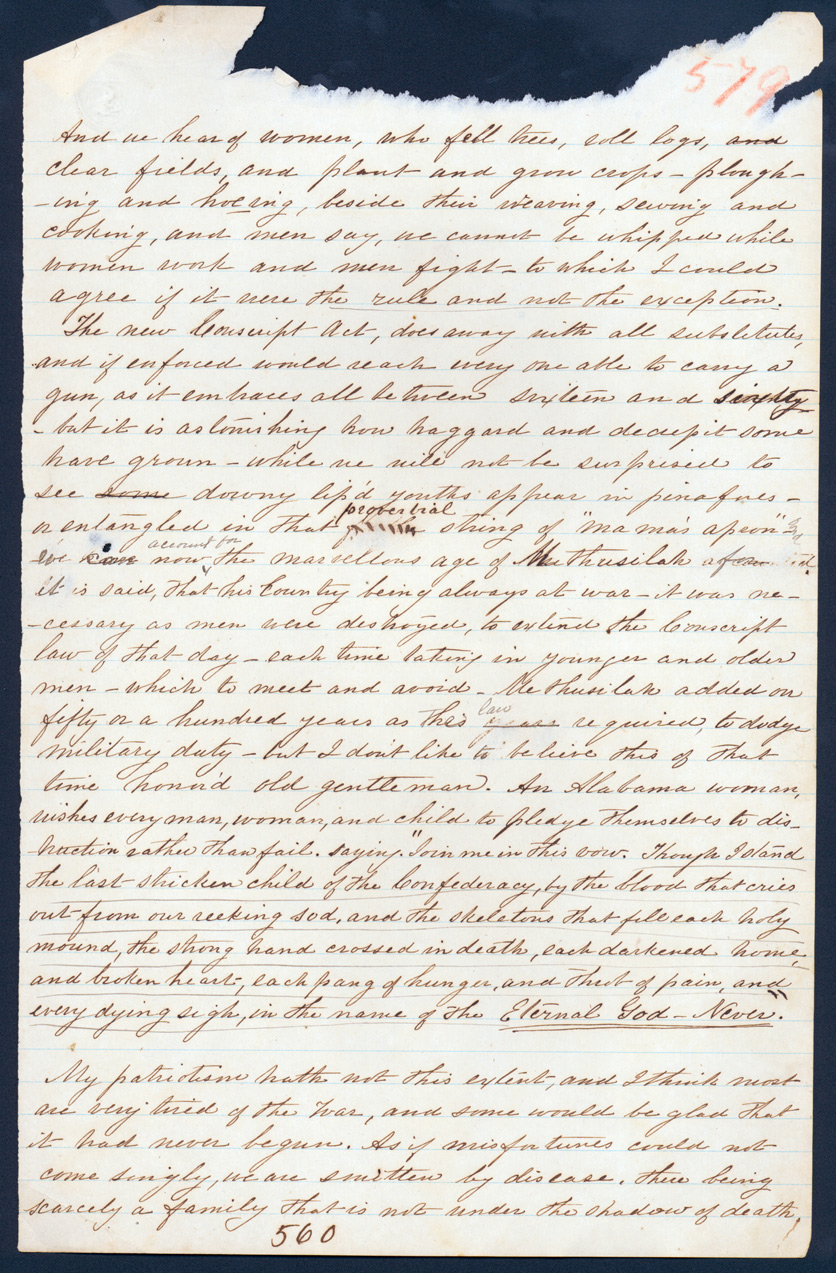 579
And we hear of women, who fell trees, roll logs, and
clear fields, and plant and grow crops – plough-
-ing and hoeing, beside their weaving, sewing and
cooking, and men say, we cannot be whipped while
women work and men fight – to which I could
agree if it were the rule and not the exception.
The new Conscript Act, does away with all substitutes,
and if enforced would reach every one able to carry a
gun, as it embraces all between sixteen and sixty
- but it is astonishing how haggard and decrepit some
have grown – while we will not be surprised to
see some downy lip'd youths appear in pinafores –
proverbial
or entangled in that string of "mama's apron" –
account for
we can now the marvellous age of Methusilah
it is said, that his Country being always at war – it was ne-
-cessary as men were destroyed, to extend the Conscript
law of that day – each time taking in younger and older
men – which to meet and avoid – Methusilah added on
law
fifty or a hundred years as this years required, to dodge
military duty – but I don't like to believe this of that
time honor'd old gentleman. An Alabama woman,
wishes every man, woman, and child to pledge themselves to dis-
-truction rather than fail. saying. "Join me in this vow. Though I stand
the last stricken child of the Confederacy, by the blood that cries
out from our reeking sod, and the skeletons that fill each holy
mound, the strong hand crossed in death, each darkened home,
and broken heart, each pang of hunger, and throt of pain, and
every dying sigh, in the name of the Eternal God – Never".
My patriotism hath not this extent, and I think most
are very tired of the War, and some would be glad that
it had never begun. As if misfortunes could not
come singly, we are smitten by disease. there being
scarcely a family that is not under the shadow of death,
560